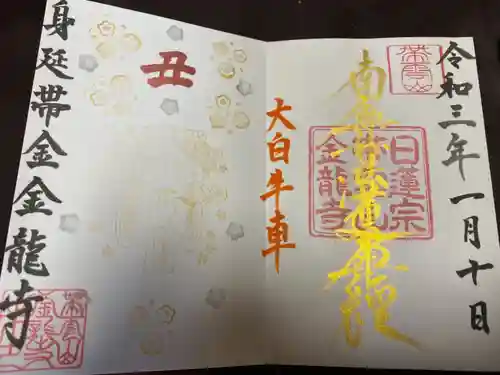 令和三年一月十日
榮雲山
南無妙法蓮華経
日蓮宗
金龍寺
大白牛車
丑
身延帯金金龍寺
榮雲山